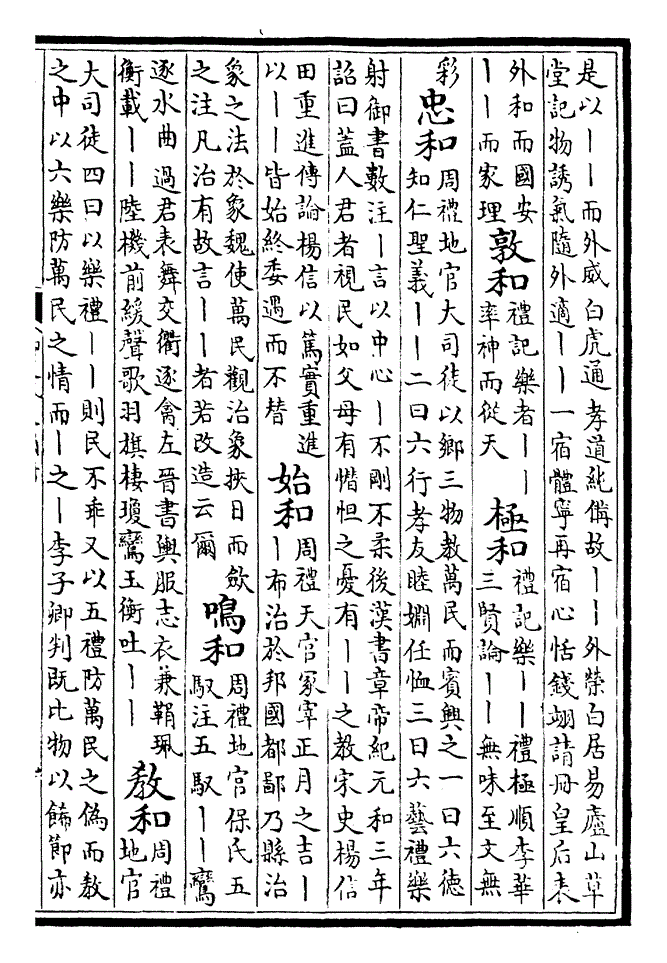 是以丨丨而外威白虎通孝道純備故丨丨外榮白居易廬山草
堂記物誘氣隨外適丨丨一宿體寧再宿心恬錢翊請冊皇后表
外和而國安
丨丨而家理
敦和
禮記樂者丨丨
率神而從天
極和
禮記樂丨丨禮極順李華
三賢論丨丨無味至文無
彩
忠和
周禮地官大司徒以鄉三物教萬民而賓興之一曰六德
知仁聖義丨丨二曰六行孝友睦婣任恤三曰六藝禮樂
射御書數注丨言以中心丨不剛不柔後漢書章帝紀元和三年
詔曰蓋人君者視民如父母有憯怛之憂有丨丨之教宋史楊信
田重進傳論楊信以篤實重進
以丨丨皆始終委遇而不替
始和
周禮天官冢宰正月之吉丨
丨布治於邦國都鄙乃縣治
象之法於象魏使萬民觀治象挾日而斂
之注凡治有故言丨丨者若改造云爾
鳴和
周禮地官保氏五
馭注五馭丨丨鸞
逐水曲過君表舞交衢逐禽左晉書輿服志衣兼鞙珮
衡載丨丨陸機前緩聲歌羽旗棲瓊鸞玉衡吐丨丨
教和
周禮
地官
大司徒四曰以樂禮丨丨則民不乖又以五禮防萬民之偽而教
之中以六樂防萬民之情而丨之丨李子卿判既比物以飾節亦